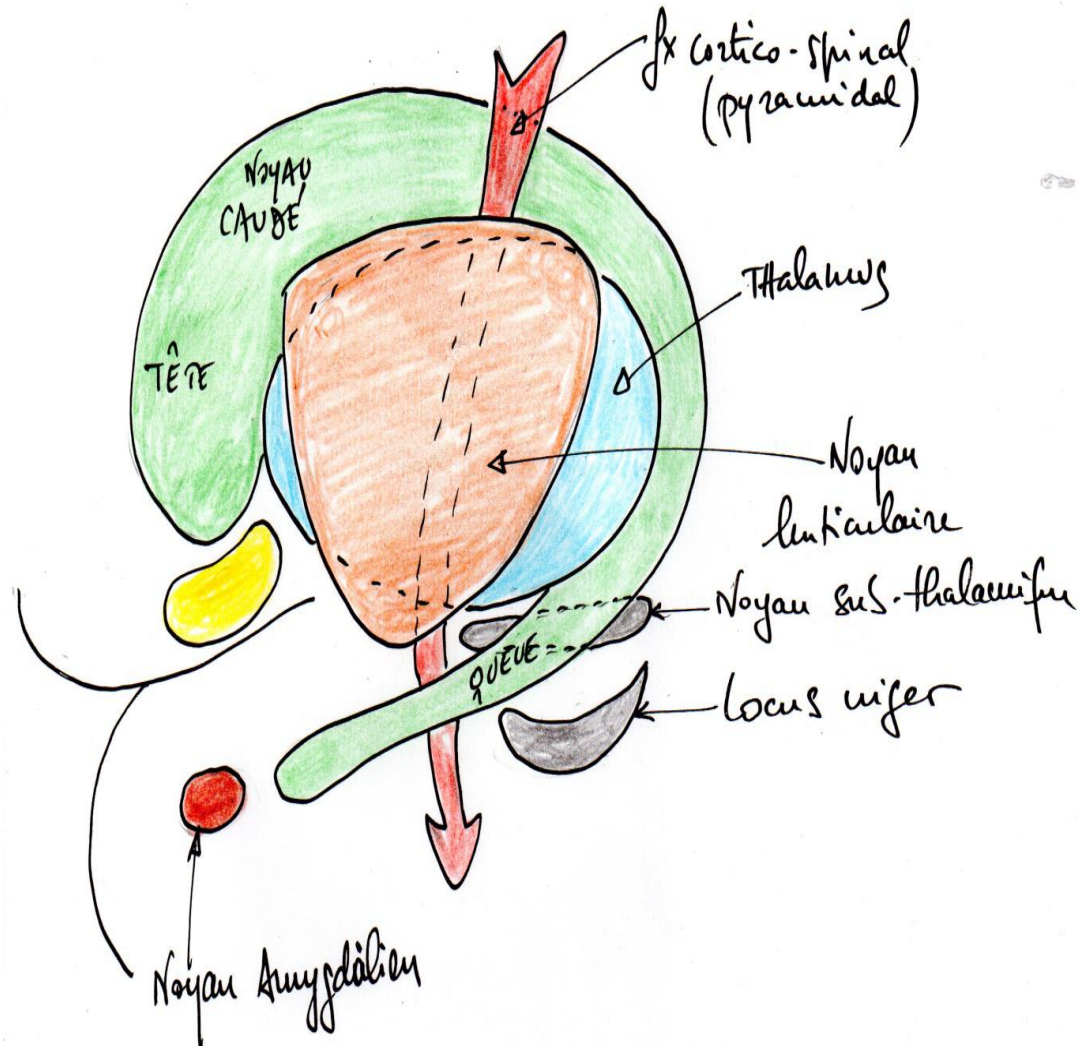 fx cortico-spinal
(pyramidal)
NOYAU
CAUDÉ
THalamus
TÊTE
Noyau
lenticulaire
Noyau sub-thalamique
QUEUE
Locus niger
Noyau Amygdalien